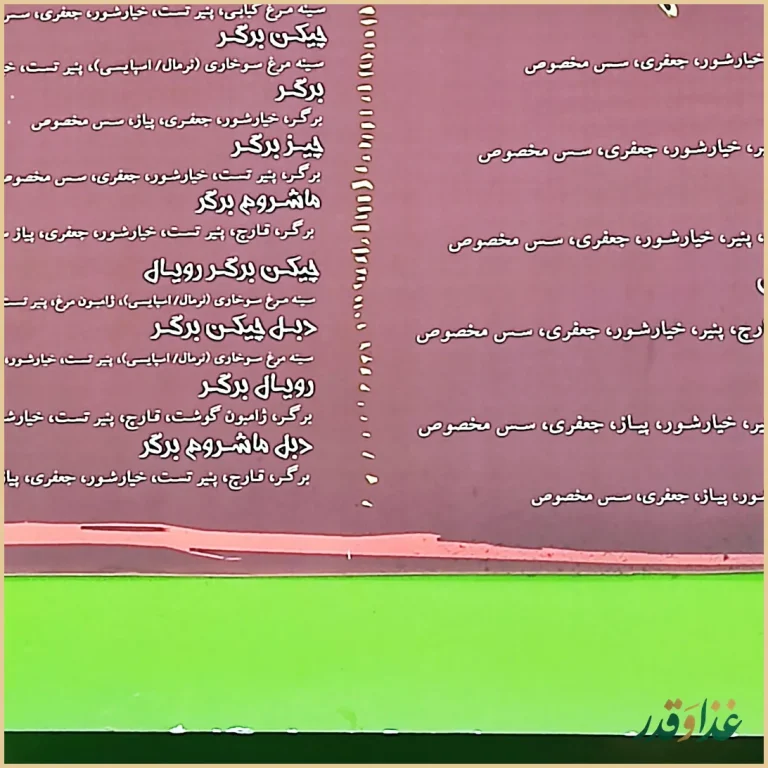 خیارشور، جعفری، سس مخصوص
خیارشور، جعفری، سس مخصوص
پنیر، خیارشور، جعفری، سس مخصوص
پنیر، خیارشور، جعفری، سس مخصوص
خیارشور، پیاز، جعفری، سس مخصوص
پیاز، جعفری، سس مخصوص
سینه مرغ کبابی، پنیر تست، خیارشور، جعفری،
چیکن برگر
سینه مرغ سوخاری (نرمال/ اسپایسی)، پنیر تست،
برگر
برگر، خیارشور، جعفری، پیاز، سس مخصوص
چیز برگر
برگر، پنیر تست، خیارشور، جعفری، سس مخصوص
ماشروم برگر
برگر، قارچ، پنیر تست، خیارشور، جعفری، پیاز
چیکن برگر رویال
سینه مرغ سوخاری (نرمال/ اسپایسی)، ژامبون مرغ، پنیر تست
دبل چیکن برگر
سینه مرغ سوخاری (نرمال/ اسپایسی)، پنیر تست، خیارشور،
رویال برگر
برگر، ژامبون گوشت، قارچ، پنیر تست،
دبل ماشروم برگر
برگر، قارچ، پنیر تست، خیارشور، جعفری،
غذا و قدر